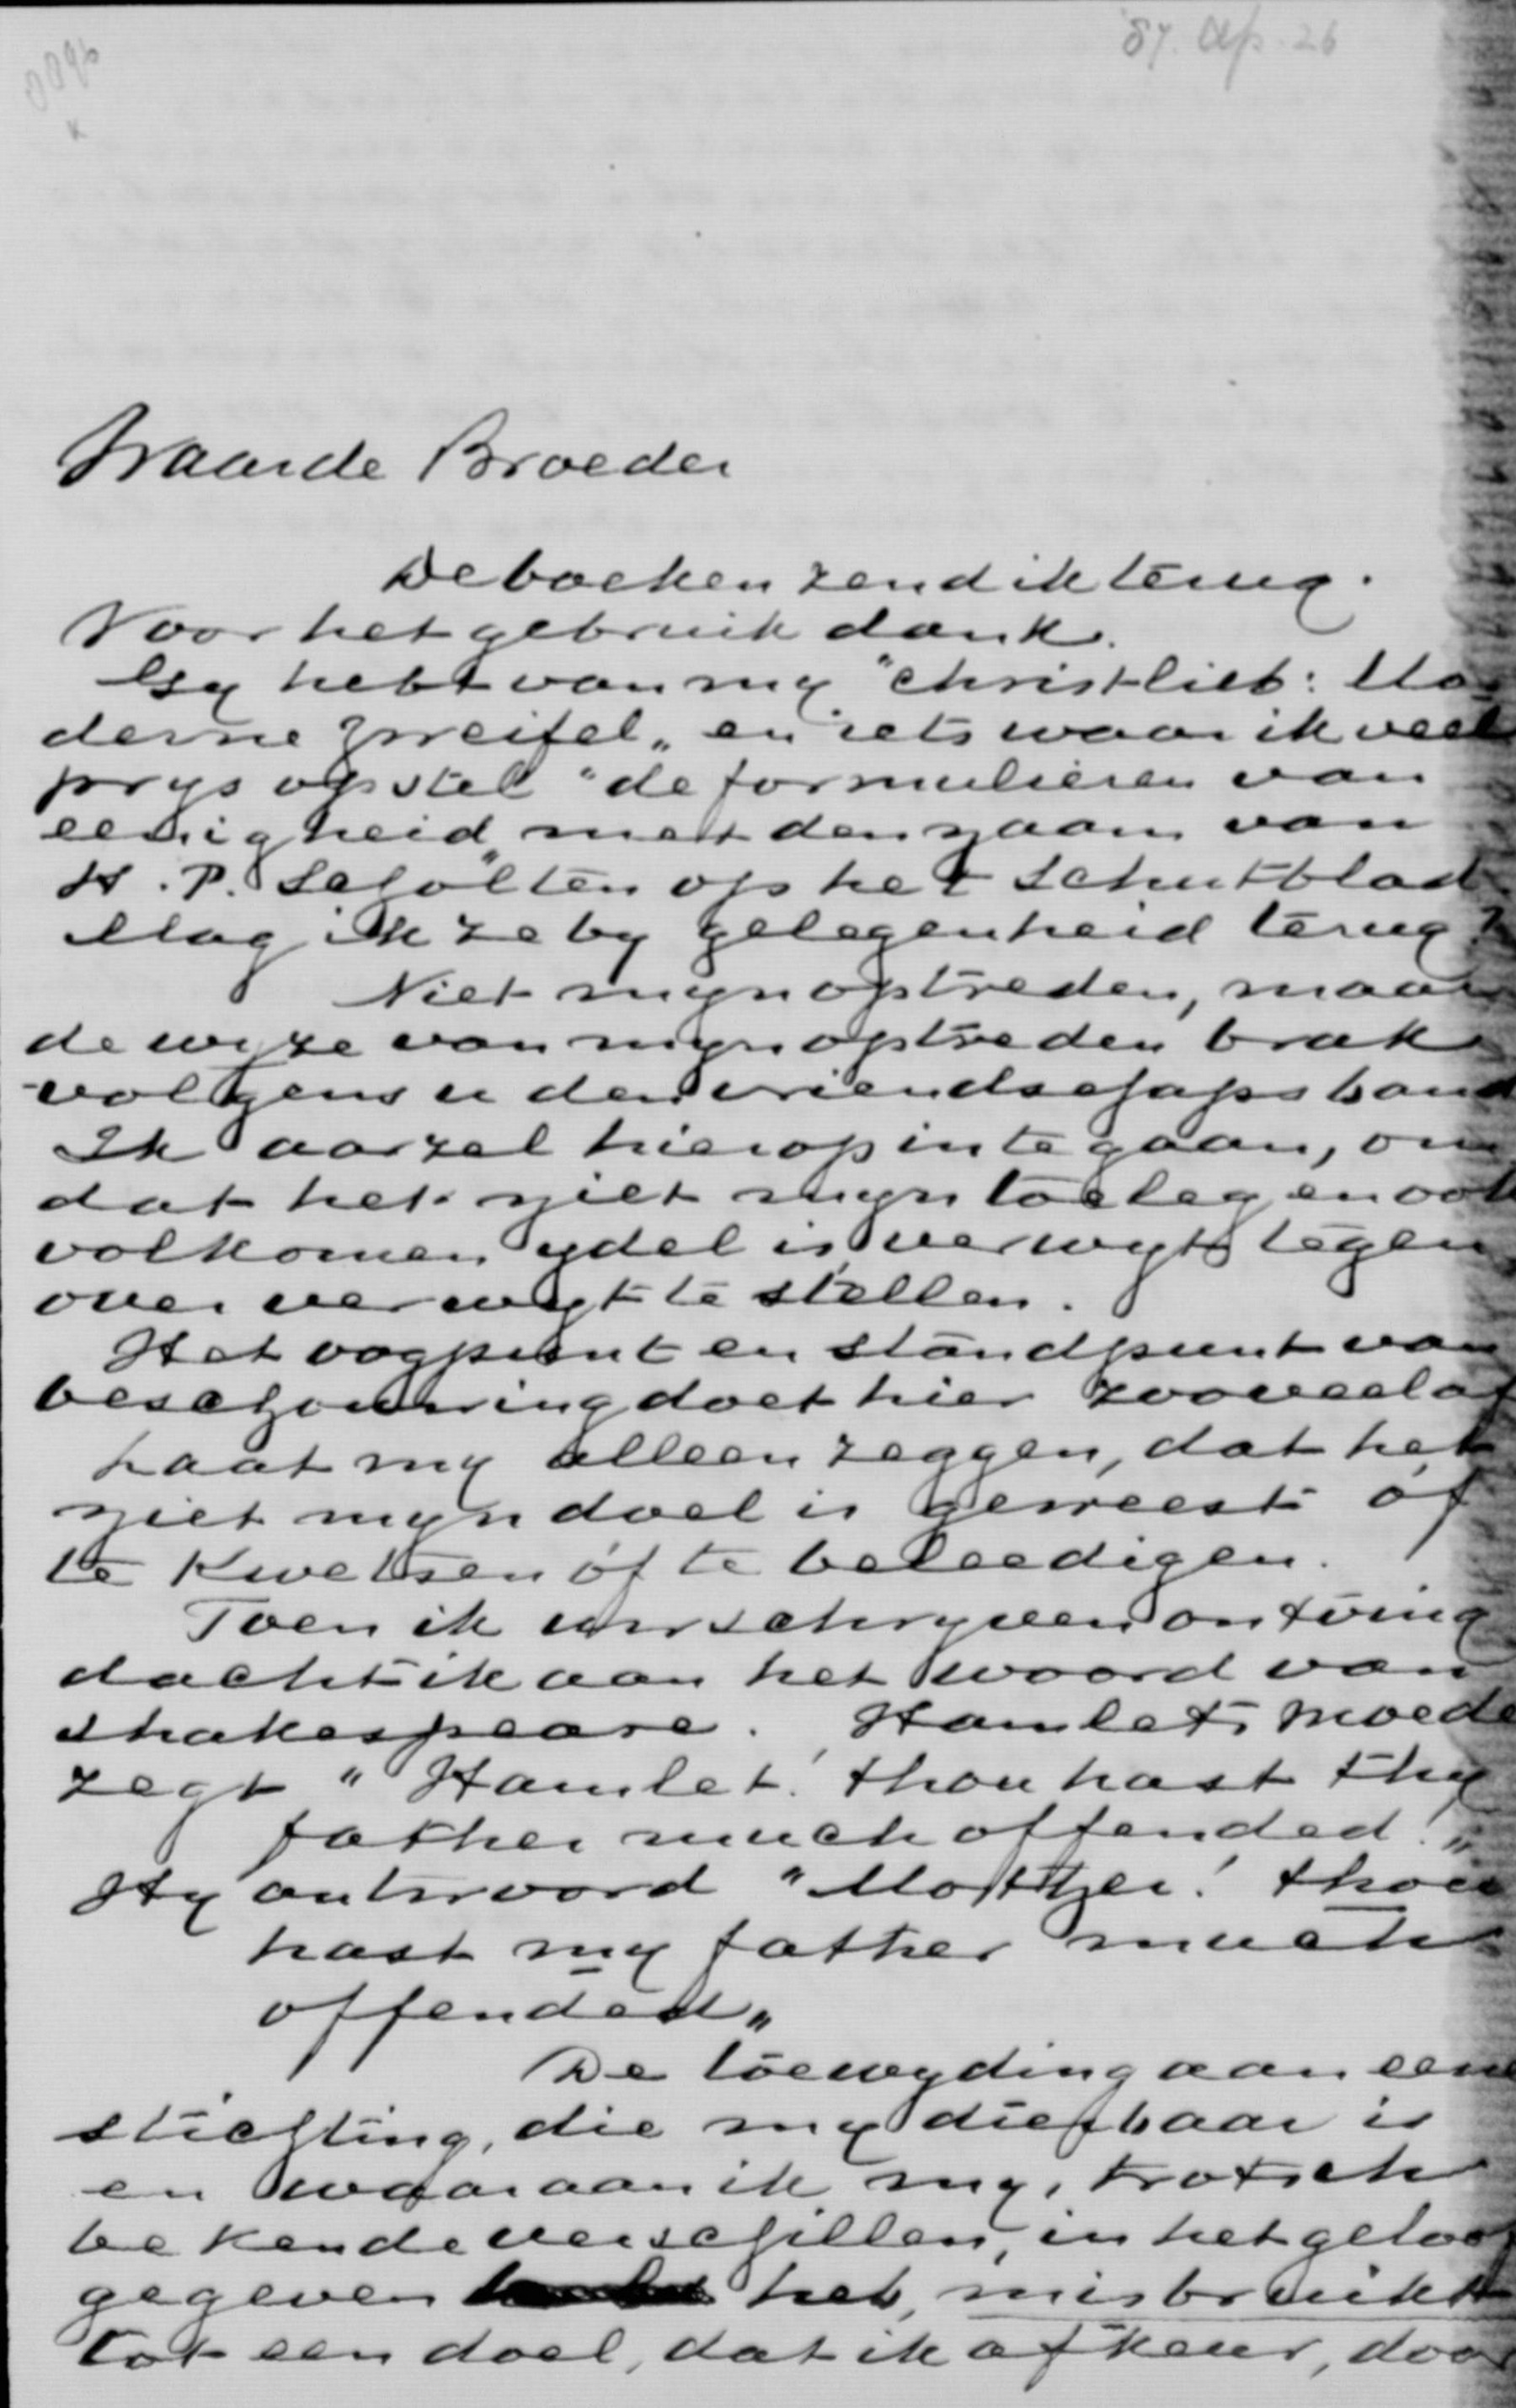 0096
87. Ap. 26
Waarde Broeder
De boeken zend ik terug.
Voor het gebruik dank.
Gy hebt van my "Christlieb: Mo-
derne Zweifel" en iets waar ik veel
prys op stel "de formulieren van
eenigheid" met den naam van
H. P. Scholten op het schutblad
Mag ik ze by gelegenheid terug?
Niet myn optreden, maar
de wyze van myn optreden brak
volgens u den vriendschapsband
Ik aarzel hierop in te gaan, om
dat het niet myn toeleg en ook
volkomen ydel is verwyt tegen
over verwyt te stellen.
Het oogpunt en standpunt van
beschouwing doet hier zooveel af
Laat my alleen zeggen, dat het
niet myn doel is geweest óf
te kwetsen óf te beleedigen.
Toen ik uw schryven ontving
dacht ik aan het woord van
Shakespeare. Hamlets moede
zegt "Hamlet! thou hast thy
father much offended!"
Hy antwoord "Mother! thou
hast my father much
offended"
De toewyding aan eene
stichting, die my dierbaar is
en waaraan ik my, trotsch
bekende verschillen, in het geloof
gegeven heb, misbruikt
tot een doel, dat ik afkeur, door